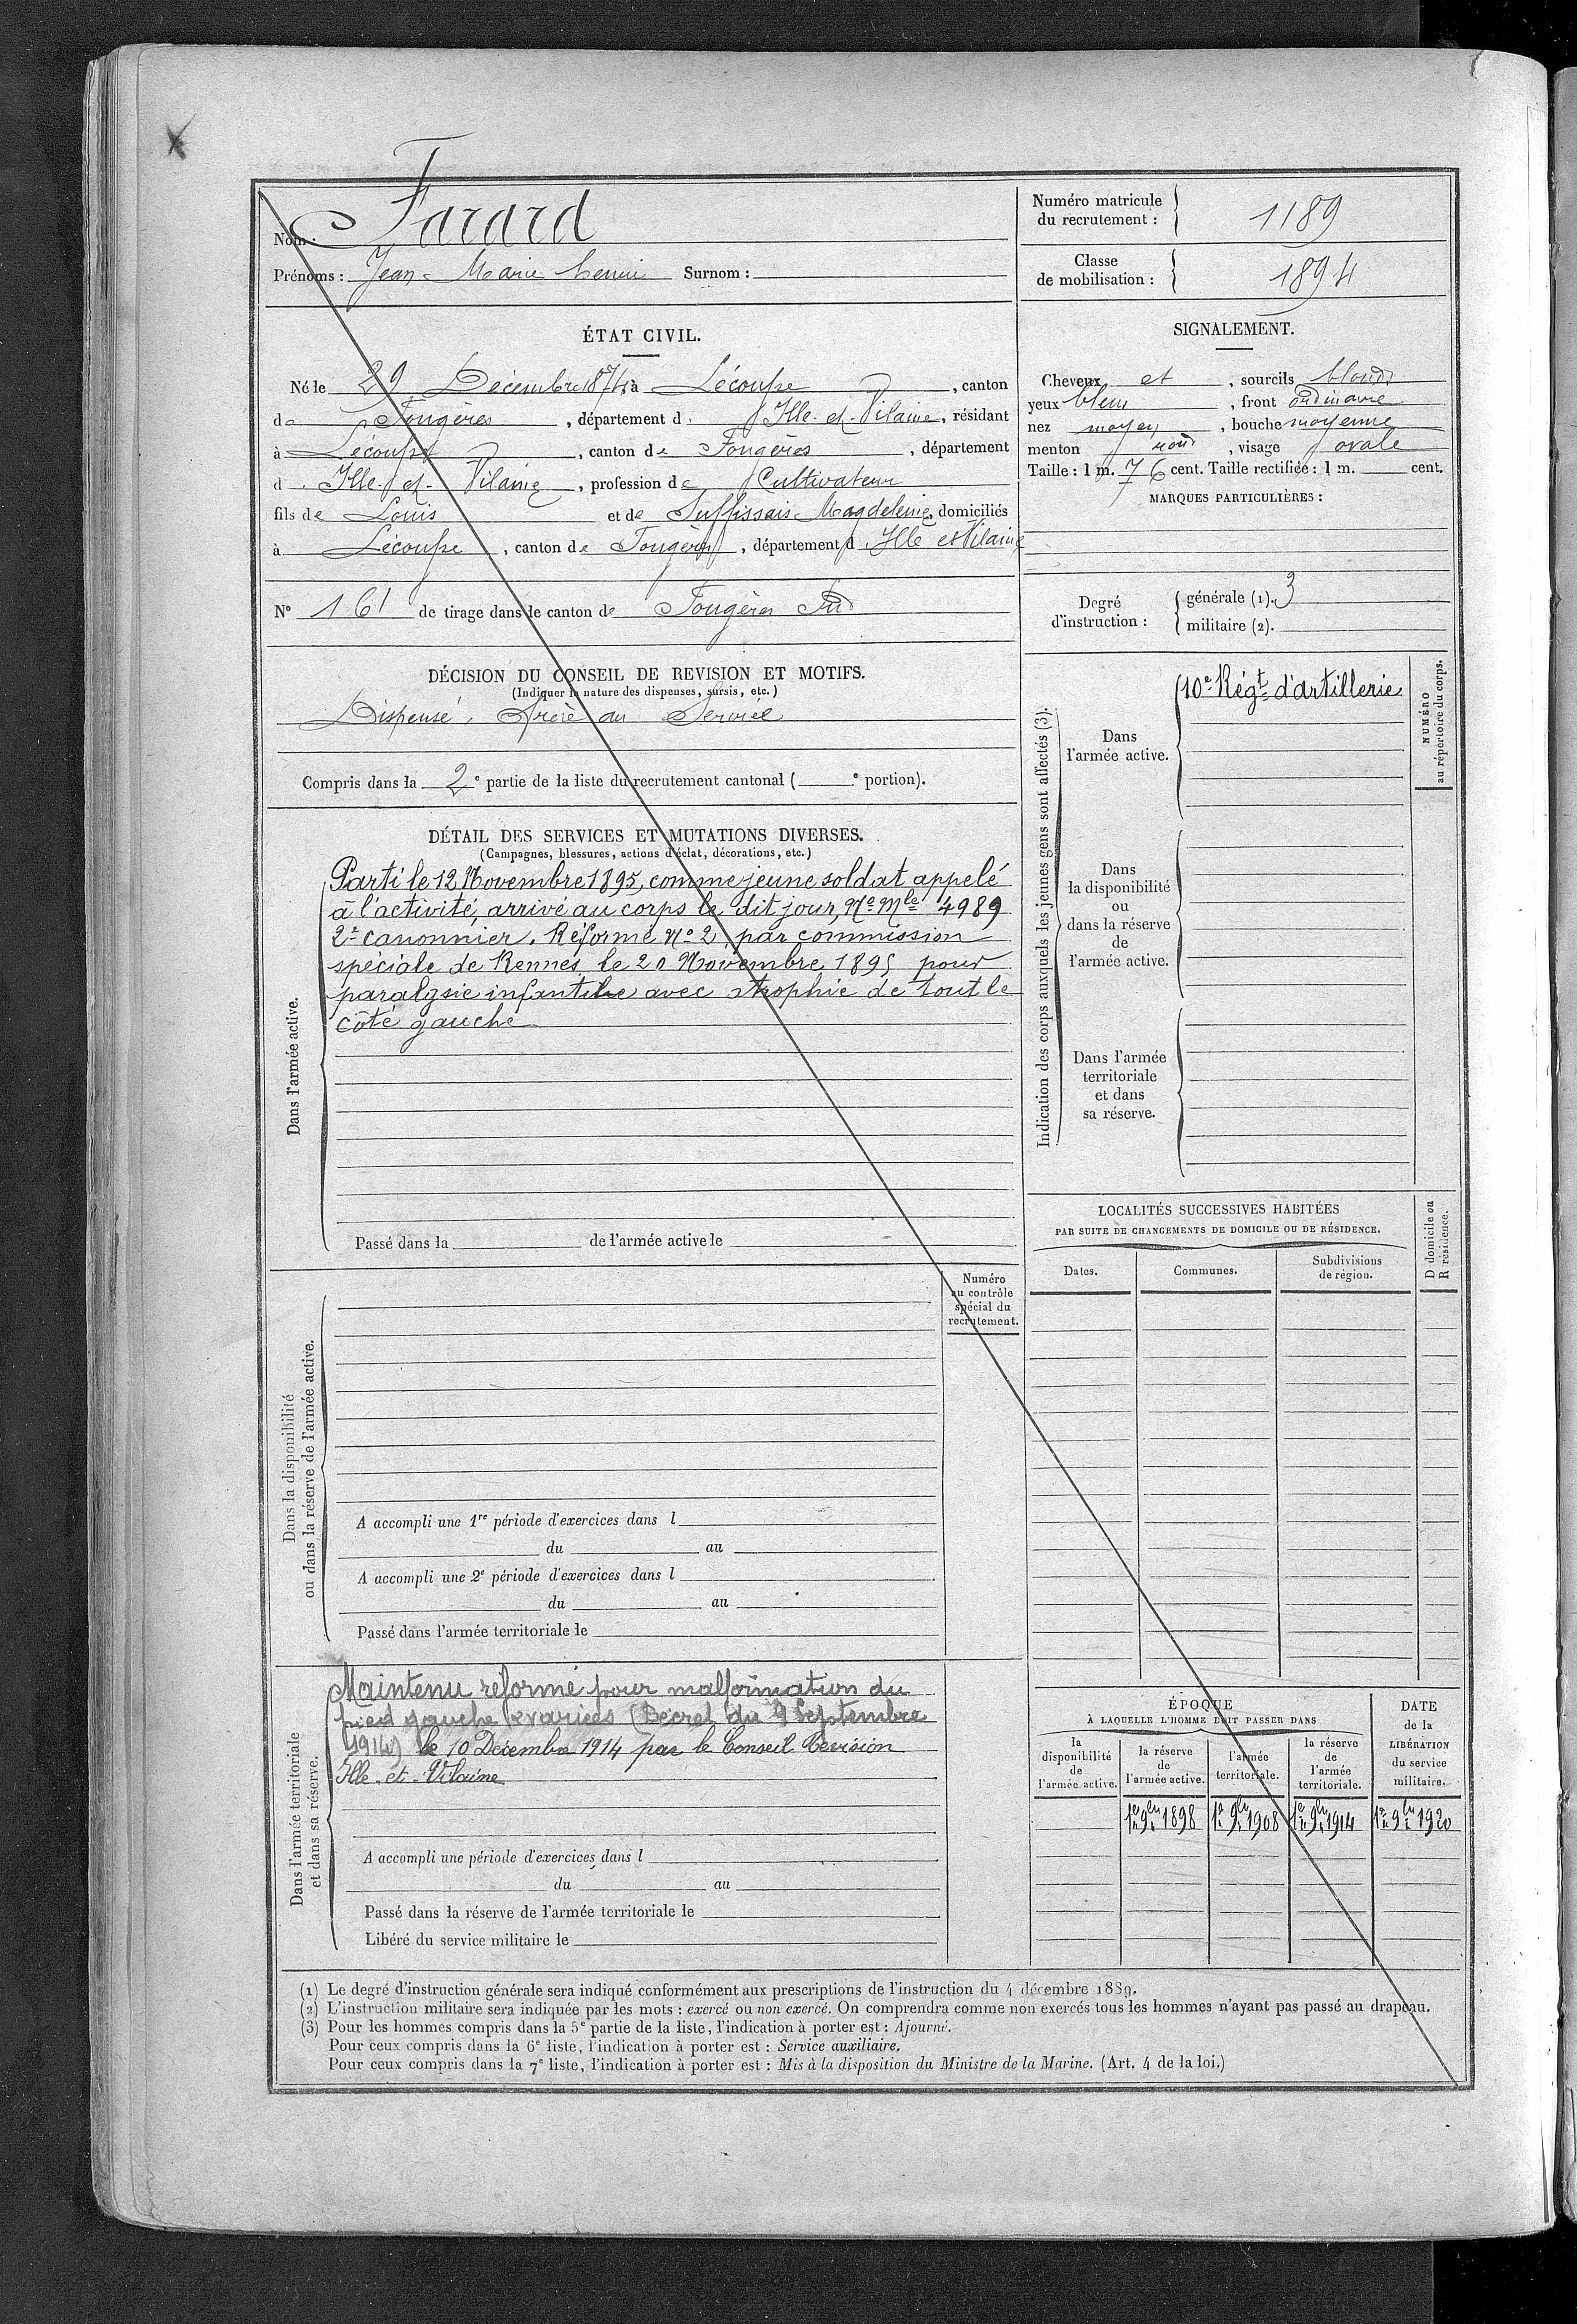 Nom : Farard
Prénoms : Jean-Marie Surnom :
Numéro matricule
du recrutement : 1189
Classe
de mobilisation : 1894
ÉTAT CIVIL.
Né le 29 Décembre 1874 à Lécousse, canton
de Fougères, département d. Ille-et-Vilaine, résidant
à Lécousse, canton de Fougères, département
d. Ille-et-Vilaine, profession de Cultivateur
fils de Louis et de Suffissais Magdeleine, domiciliés
à Lécousse, canton de Fougères, département d. Ille et Vilaine
N° 161 de tirage dans le canton de Fougères Sud
SIGNALEMENT.
Cheveux et, sourcils blonds
yeux bleus, front ordinaire
nez moyen, bouche moyenne
menton rond, visage ovale
Taille : 1 m. 76 cent. Taille rectifiée : 1 m. cent.
MARQUES PARTICULIÈRES :
Degré
d'instruction :
générale (1). 3
militaire (2).
DÉCISION DU CONSEIL DE REVISION ET MOTIFS.
(Indiquer la nature des dispenses, sursis, etc.)
Dispensé. Frère au Service
Compris dans la 2e partie de la liste du recrutement cantonal ( e portion).
DÉTAIL DES SERVICES ET MUTATIONS DIVERSES.
(Campagnes, blessures, actions d'éclat, décorations, etc.)
Dans l'armée active.
Parti le 12 Novembre 1895, comme jeune soldat appelé
à l'activité, arrivé au corps le dit jour, No Mle 4989
2e canonnier. Réformé No 2 par commission
spéciale de Rennes le 20 Novembre 1895 pour
paralysie infantile avec atrophie de tout le
côté gauche
Passé dans la de l'armée active le
Indication des corps auxquels les jeunes gens sont affectés (3).
Dans
l'armée active.
10e Régt d'artillerie
NUMÉRO
au répertoire du corps.
Dans
la disponibilité
ou
dans la réserve
de
l'armée active.
Dans l'armée
territoriale
et dans
sa réserve.
LOCALITÉS SUCCESSIVES HABITÉES
PAR SUITE DE CHANGEMENTS DE DOMICILE OU DE RÉSIDENCE.
Dates.
Communes.
Subdivisions
de région.
D domicile ou
R résidence.
Numéro
au contrôle
spécial du
recrutement.
Dans la disponibilité
ou dans la réserve de l'armée active.
A accompli une 1re période d'exercices dans l
du au
A accompli une 2e période d'exercices dans l
du au
Passé dans l'armée territoriale le
Dans l'armée territoriale
et dans sa réserve.
Maintenu réformé pour malformation du
pied gauche & varices (Décret du 9 Septembre
1914) le 10 Décembre 1914 par le Conseil Révision
Ille-et-Vilaine
A accompli une période d'exercices dans l
du au
Passé dans la réserve de l'armée territoriale le
Libéré du service militaire le
ÉPOQUE
À LAQUELLE L'HOMME DOIT PASSER DANS
la
disponibilité
de
l'armée active.
la réserve
de
l'armée active.
l'armée
territoriale.
la réserve
de
l'armée
territoriale.
DATE
de la
LIBÉRATION
du service
militaire.
1er 9bre 1898
1er 9bre 1908
1er 9bre 1914
1er 9bre 1920
(1) Le degré d'instruction générale sera indiqué conformément aux prescriptions de l'instruction du 4 décembre 1889.
(2) L'instruction militaire sera indiquée par les mots : exercé ou non exercé. On comprendra comme non exercés tous les hommes n'ayant pas passé au drapeau.
(3) Pour les hommes compris dans la 5e partie de la liste, l'indication à porter est : Ajourné.
Pour ceux compris dans la 6e liste, l'indication à porter est : Service auxiliaire.
Pour ceux compris dans la 7e liste, l'indication à porter est : Mis à la disposition du Ministre de la Marine. (Art. 4 de la loi.)